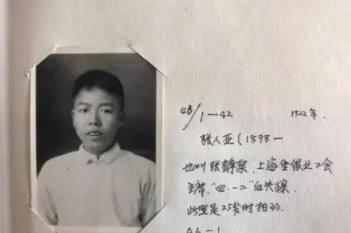 48/1-42 1922年.
张人亚(1898—
也叫张静泉.上海金银业工会
主席."四.一二"后失踪.
此照是25岁时拍的.
A6-1